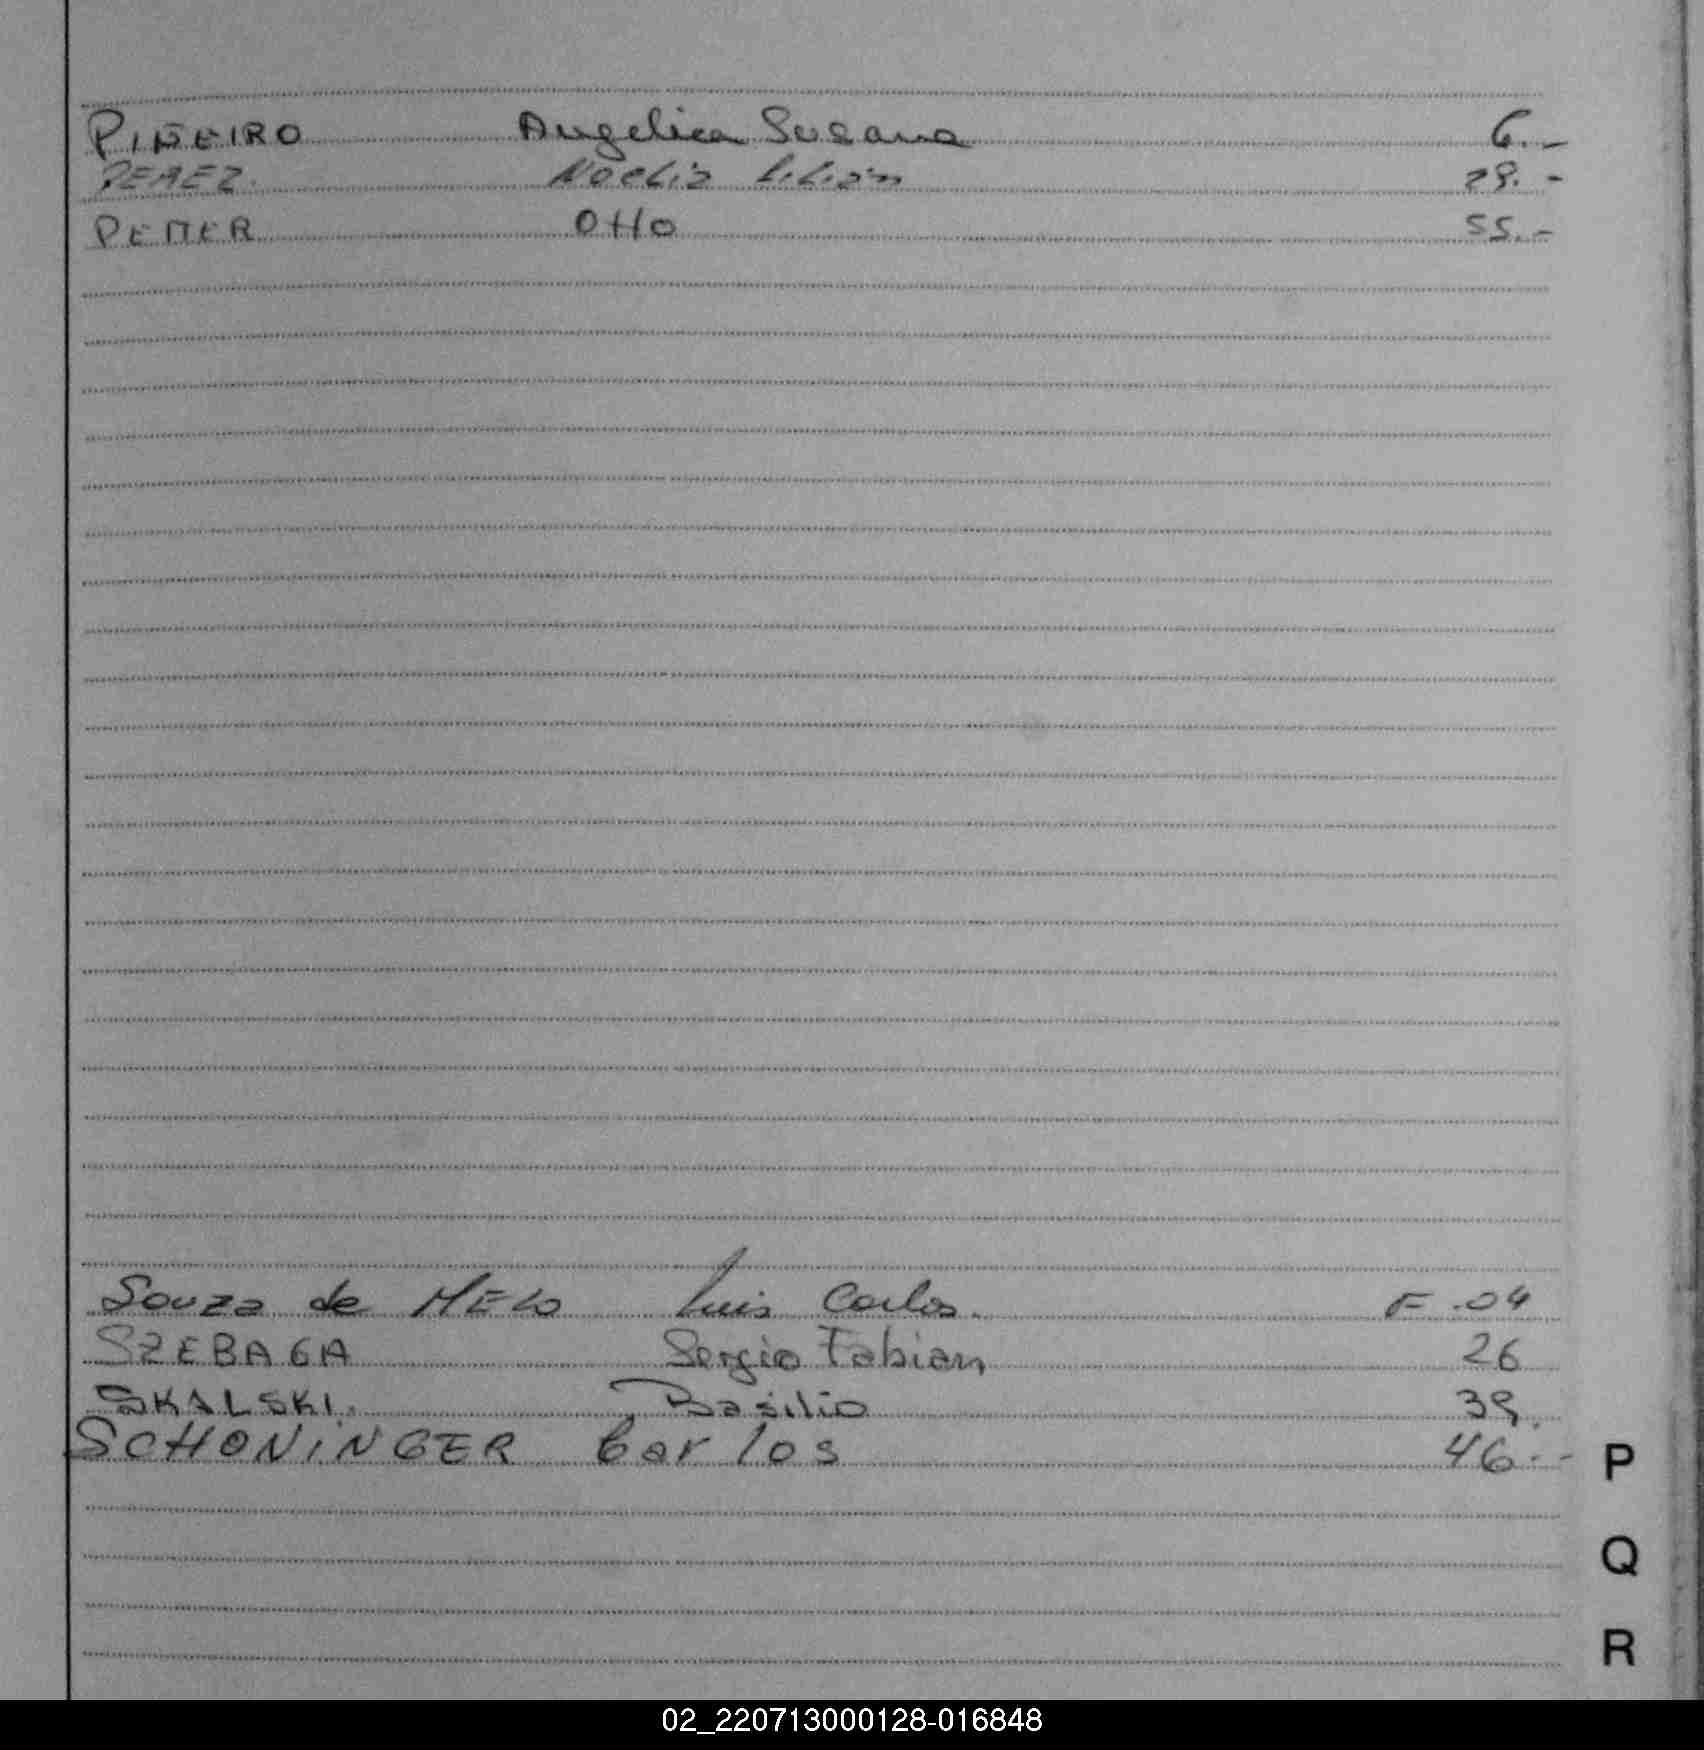 PIÑEIRO Angelica Susana 6.-
PEREZ. Noelia Lilian 29.-
PETTER Otto 55.-
Souza de MELO Luis Carlos. F.04
SZEBAGA Sergio Fabian 26
SKALSKI. Basilio 39.
SCHONINGER Carlos 46.-
P
Q
R
02_220713000128-016848